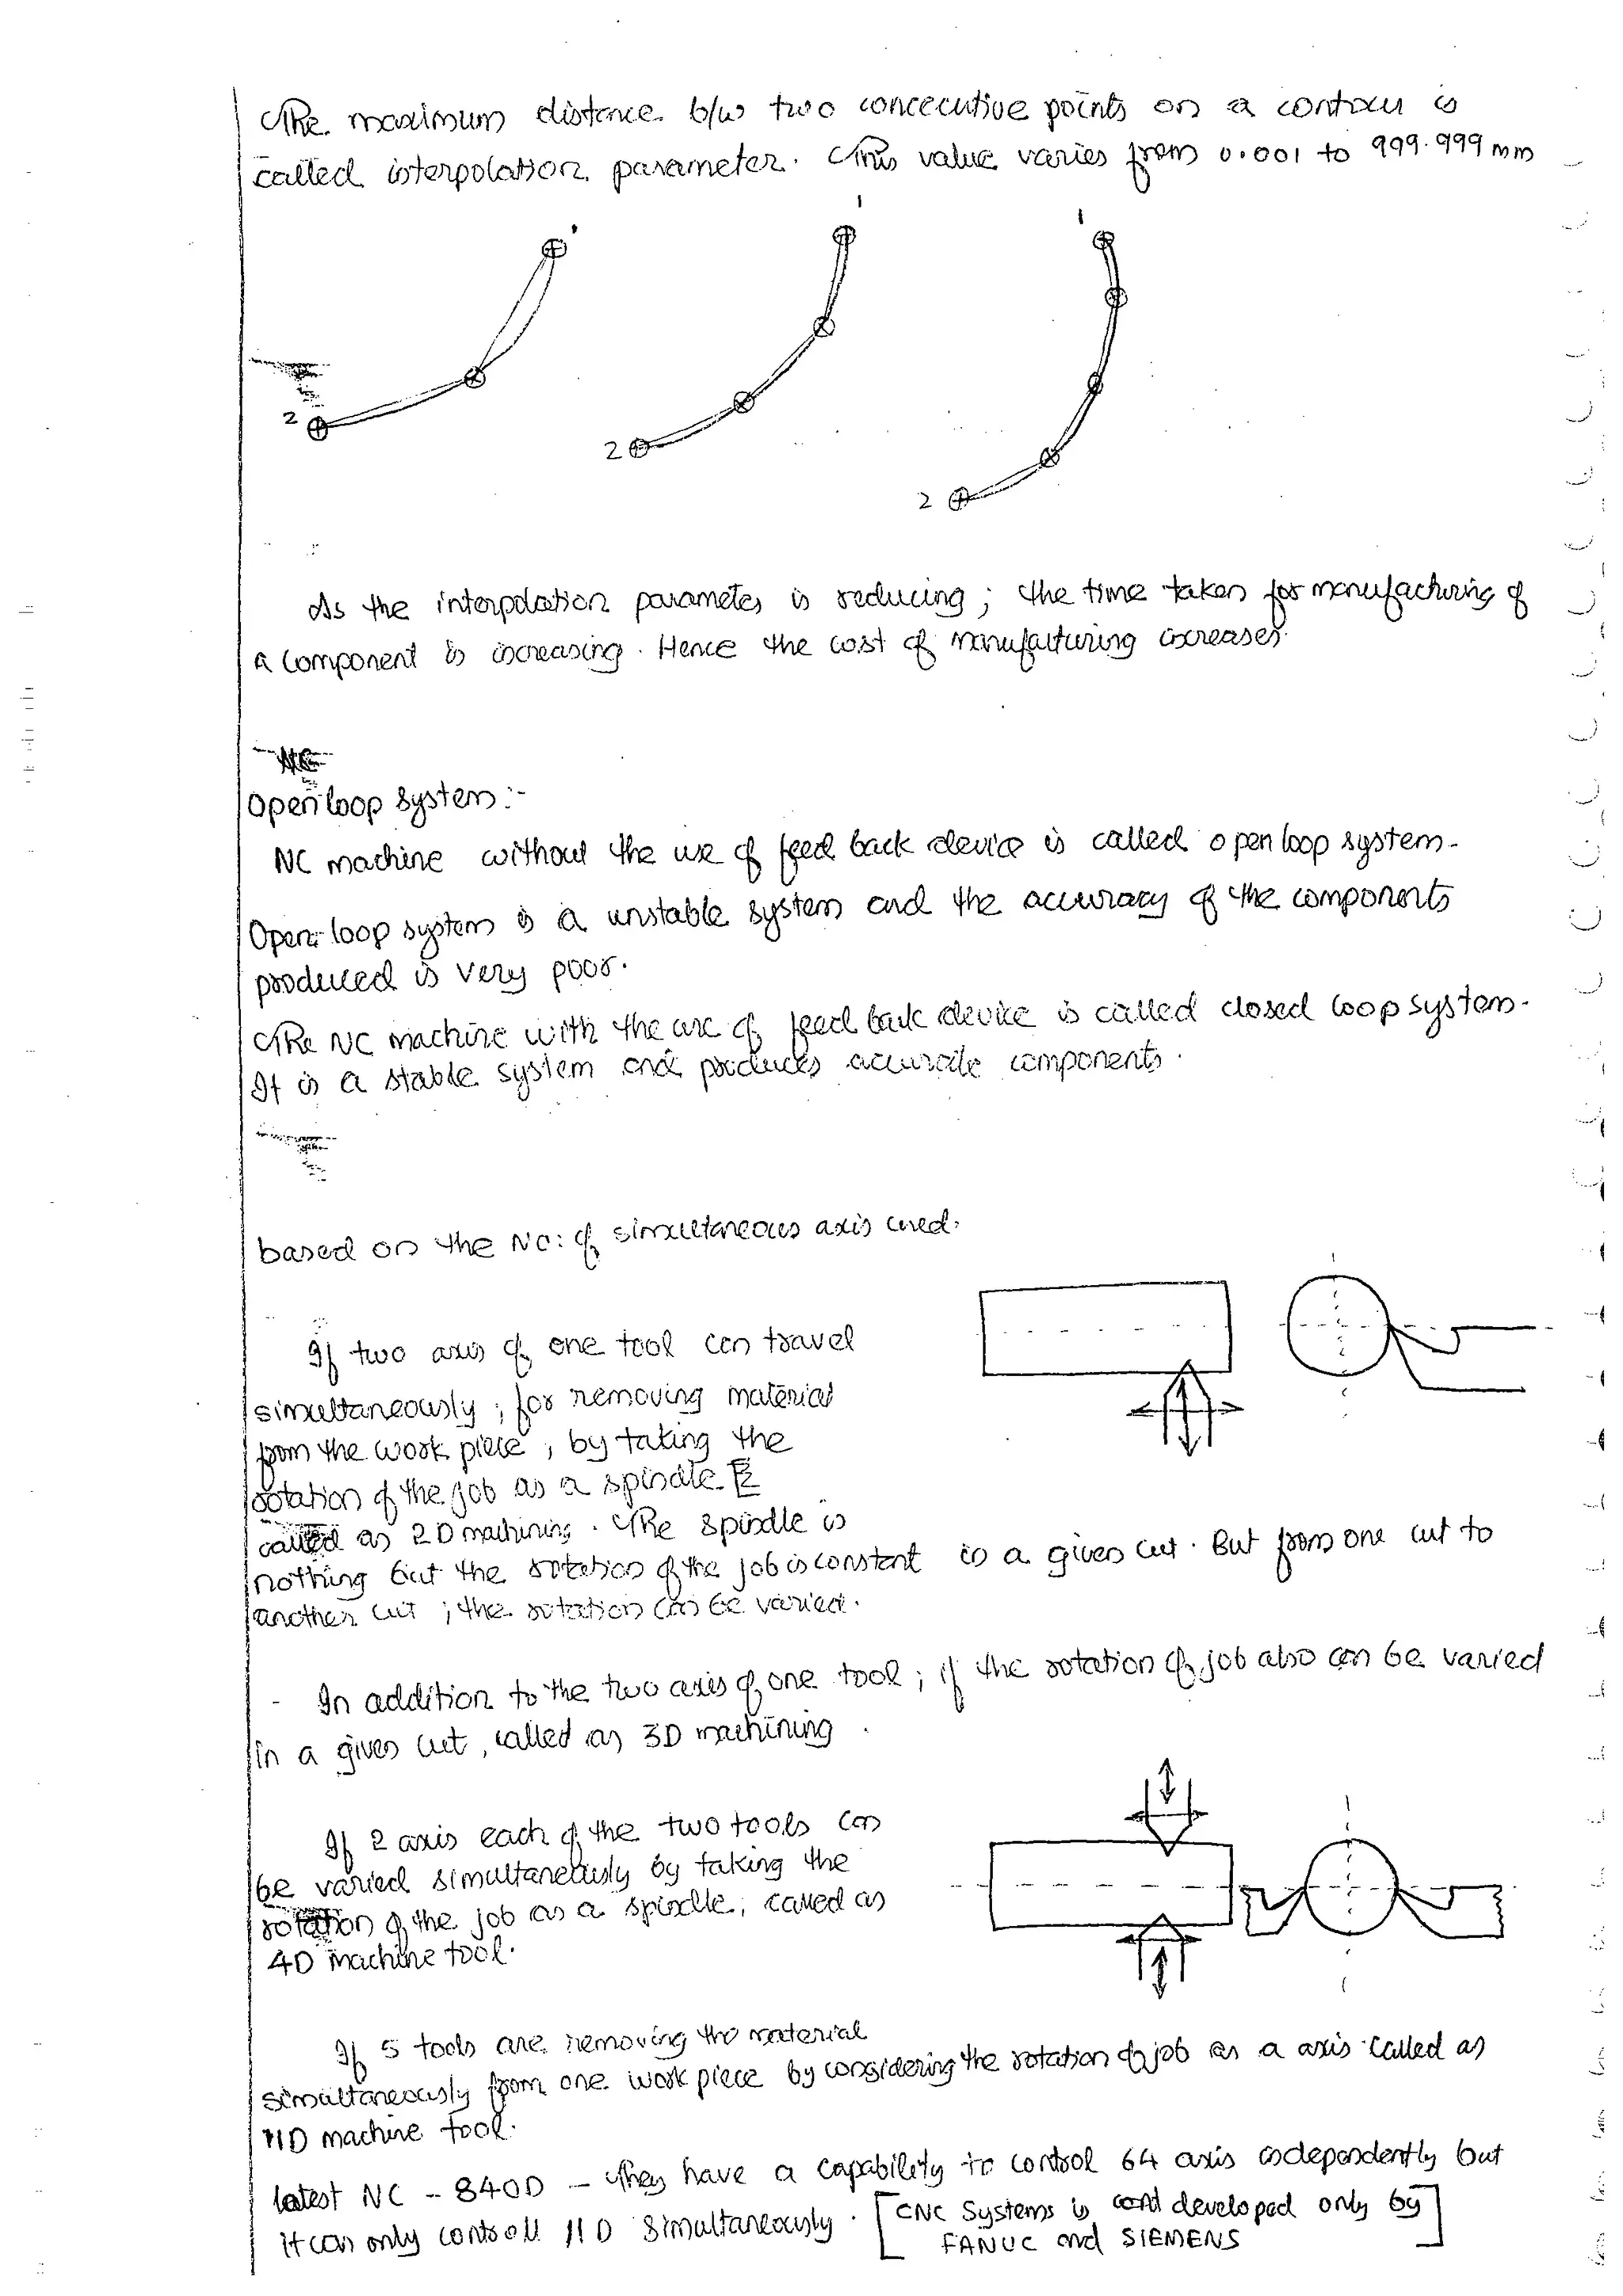 The maximum distance b/w two concecutive points on a contour is
called interpolation parameter. This value varies from 0.001 to 999.999 mm
1 1 1
2
2
2
As the interpolation parameter is reducing ; the time taken for manufacturing of
a component is increasing. Hence the cost of manufacturing increases.
Open loop system :-
NC machine without the use of feed back device is called open loop system.
Open loop system is a unstable system and the accuracy of the components
produced is very poor.
The NC machine with the use of feed back device is called closed loop system.
It is a stable system and produces accurate components.
based on the No: of simultaneous axis used.
If two axis of one tool can travel
simultaneously ; for removing material
from the work piece , by taking the
rotation of the job as a spindle
called as 2D machining. The spindle is
nothing but the rotation of the job is constant in a given cut. But from one cut to
another cut ; the rotation can be varied.
- In addition to the two axis of one tool ; if the rotation of job also can be varied
in a given cut , called as 3D machining .
If 2 axis each of the two tools can
be varied simultaneously by taking the
rotation of the job as a spindle , called as
4D machine tool.
If 5 tools are removing the material
simultaneously from one work piece by considering the rotation of job as a axis called as
11D machine tool.
latest NC - 840D - They have a capability to control 64 axis independently but
it can only controll 11 D simultaneously. [CNC Systems is developed only by
FANUC and SIEMENS]